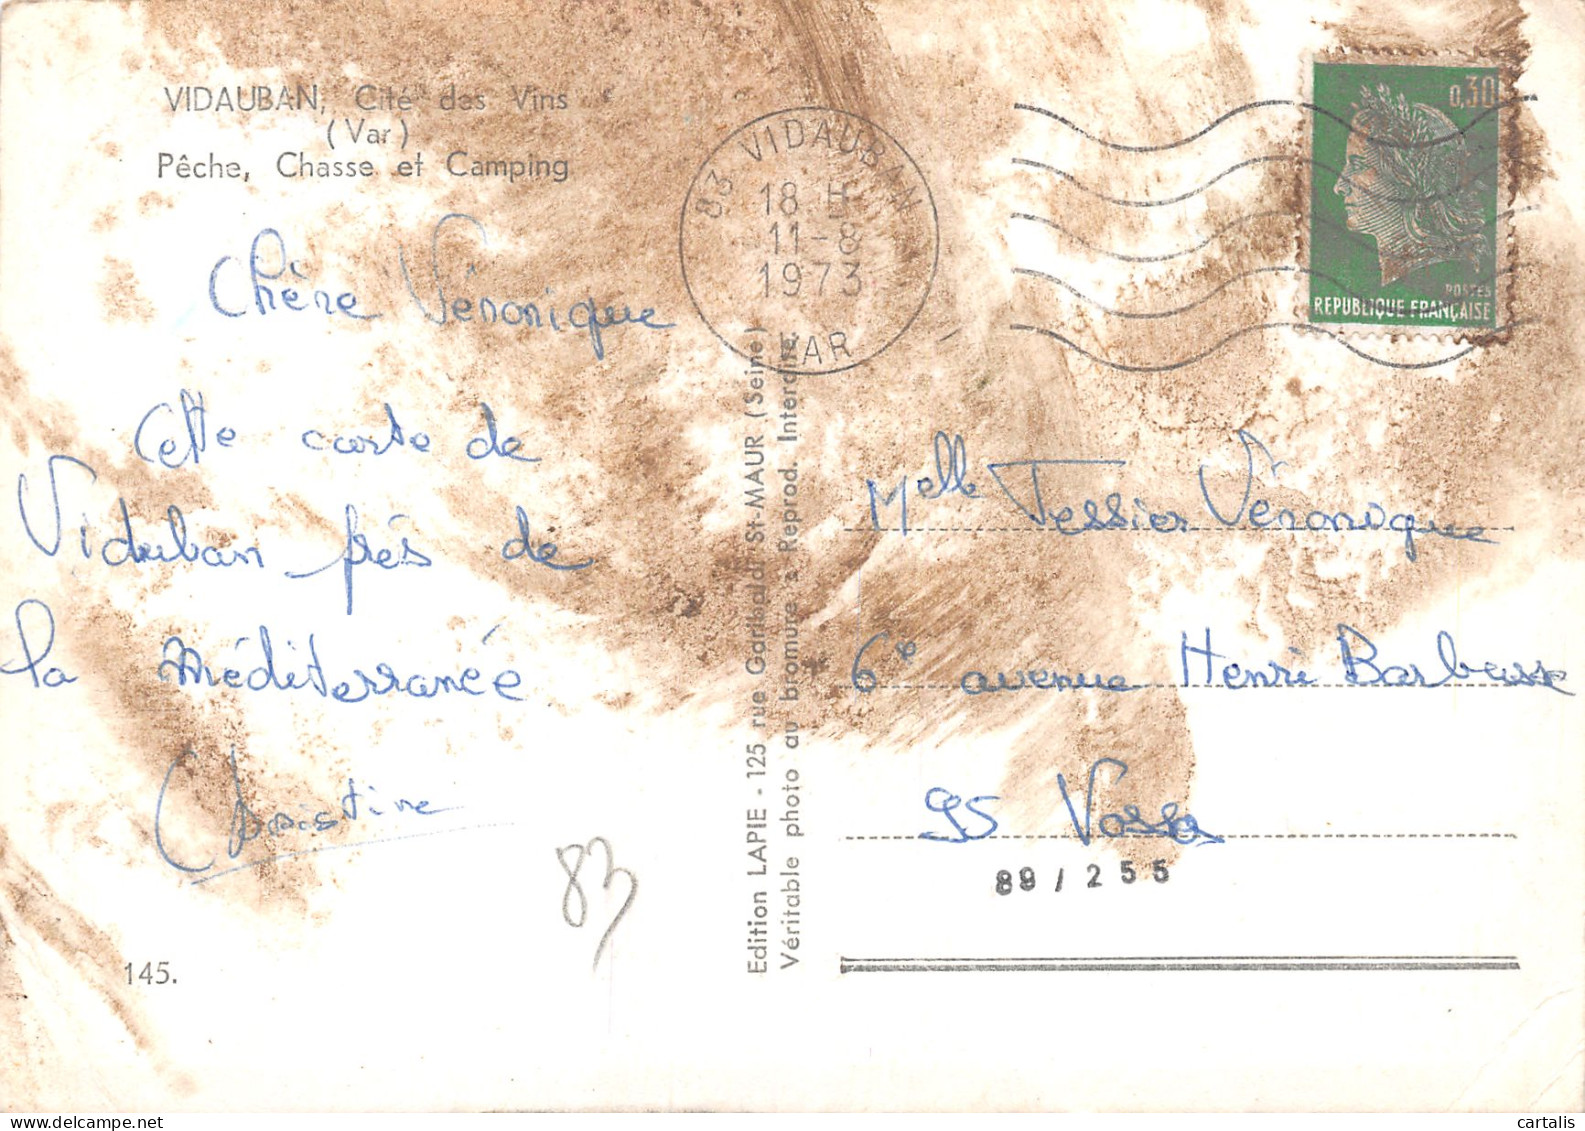 VIDAUBAN, Cité des Vins
(Var)
Pêche, Chasse et Camping
83 VIDAUBAN
18 H
11-8
1973
VAR
0,30
POSTES
REPUBLIQUE FRANÇAISE
Chère Véronique
Cette carte de
Viduban près de
la méditerranée
Christine
83
145.
Edition LAPIE - 125 rue Garibaldi St-MAUR (Seine)
Véritable photo au bromure - Reprod. Interdite.
Melle Tessier Véronique
6e avenue Henri Barbusse
95
89 / 255
cartalis